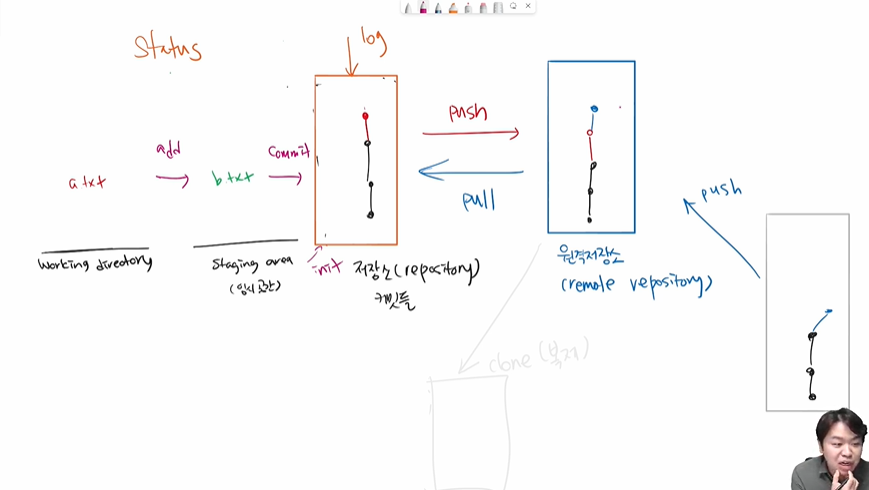 Status
log
add
commit
push
pull
a txt
b txt
push
working directory
Staging area
(임시공간)
init
저장소(repository)
커밋들
원격저장소
(remote repository)
clone (복제)